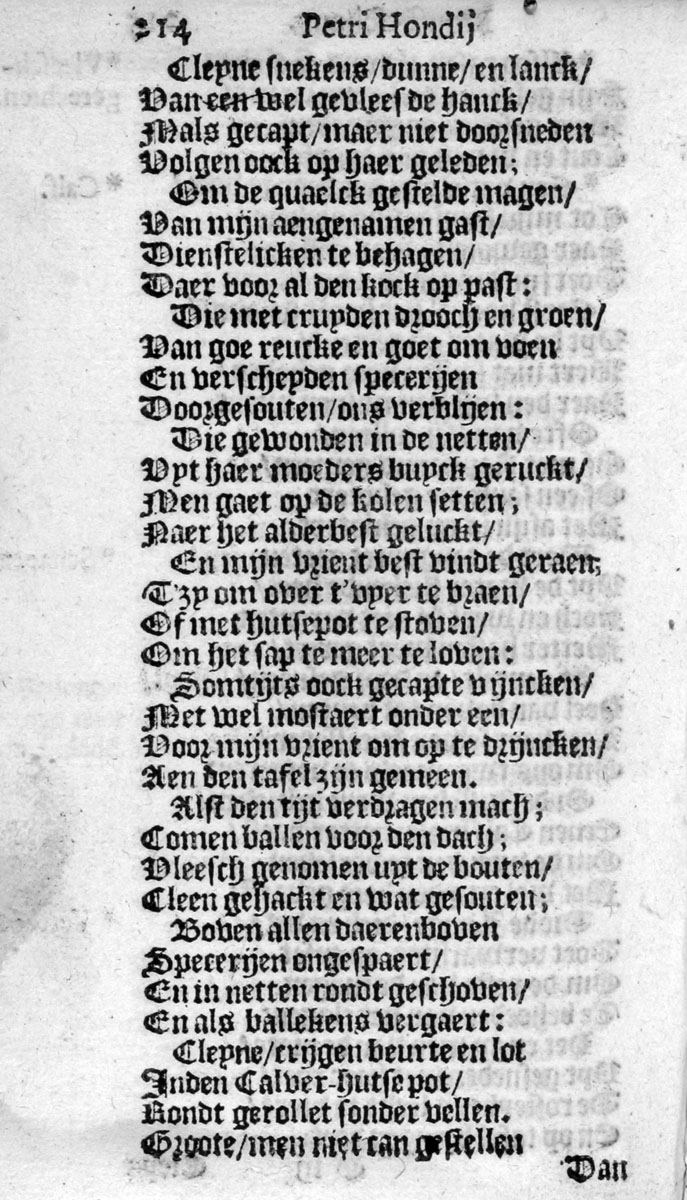 214 Petri Hondij
Cleyne snekens/dunne/ en lanck/
Van een wel gevleesde hanck/
Mals gecapt/maer niet doorsneden
Volgen oock op haer geleden;
Om de quaelck gestelde magen/
Van mijn aengenamen gast/
Dienstelicken te behagen/
Daer voor al den kock op past:
Die met cruyden drooch en groen/
Van goe reucke en goet om voen
En verscheyden specerijen
Doorgesouten/ons verblijen:
Die gewonden in de netten/
Vyt haer moeders buyck geruckt/
Men gaet op de kolen setten;
Naer het alderbest geluckt/
En mijn vrient best vindt geraen;
T'zy om over t'vyer te braen/
Of met hutsepot te stoven/
Om het sap te meer te loven:
Somtijts oock gecapte vijncken/
Met wel mostaert onder een/
Voor mijn vrient om op te drijncken/
Aen den tafel zijn gemeen.
Alst den tijt verdragen mach;
Comen ballen voor den dach;
Vleesch genomen uyt de bouten/
Cleen gehackt en wat gesouten;
Boven allen daerenboven
Specerijen ongespaert/
En in netten rondt geschoven/
En als ballekens vergaert:
Cleyne/crijgen beurte en lot
Inden Calver-hutsepot/
Rondt gerollet sonder vellen.
Groote/men niet can gestellen
Dan